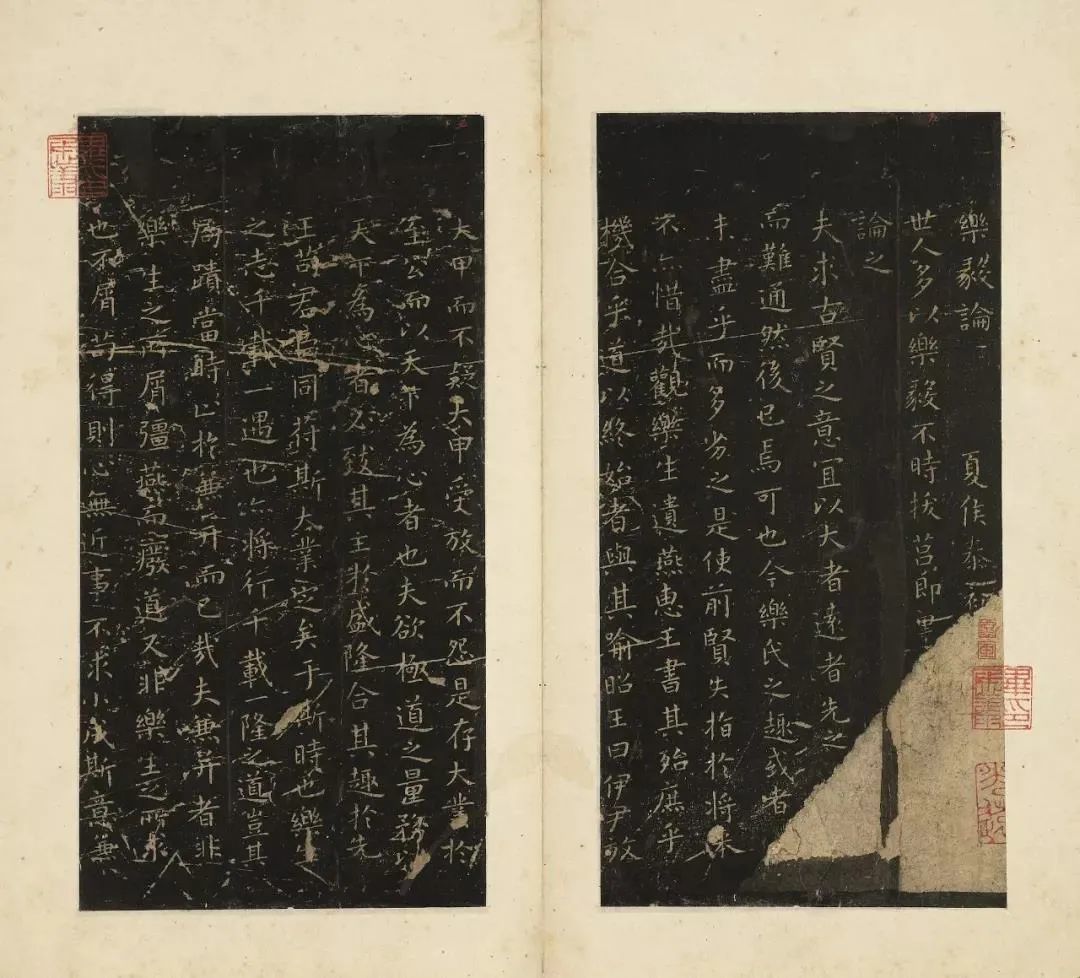 樂毅論 夏侯泰初
世人多以樂毅不時拔莒即墨
論之
夫求古賢之意宜以大者遠者先之
而難通然後已焉可也今樂氏之趣或者
未盡乎而多劣之是使前賢失指於將来
不亦惜哉觀樂生遺燕惠王書其殆庶乎
機合乎道以終始者與其喻昭王曰伊尹放
大甲而不疑大甲受放而不怨是存大業於
至公而以天下為心者也夫欲極道之量務以
天下為心者必致其主於盛隆合其趣於先
王苟君臣同符斯大業定矣于斯時也樂生
之志千載一遇也亦將行千載一隆之道豈其
局蹟當時止於兼并而已哉夫兼并者非
樂生之所屑彊燕而廢道又非樂生之所求
也不屑苟得則心無近事不求小成斯意兼